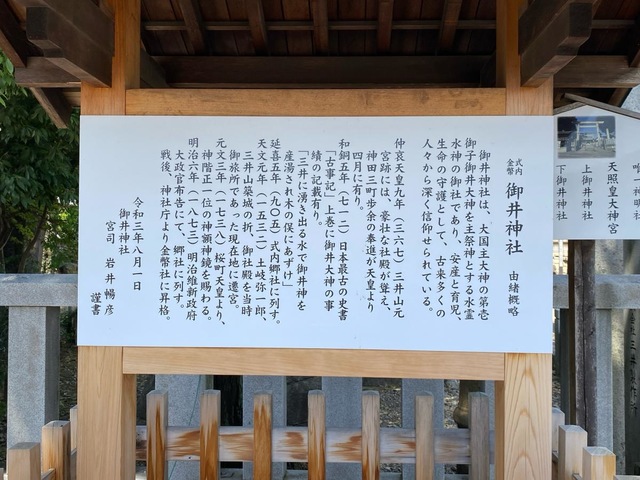 式内
金幣
御井神社　由緒概略
御井神社は、大国主大神の第壱
御子御井大神を主祭神とする水霊
水神の御社であり、安産と育児、
生命の守護として、古来多くの
人々から深く信仰せられている。
仲哀天皇九年（三六七）三井山元
宮跡には、豪壮な社殿が聳え、
神田三町歩余の奉進が天皇より
四月に有り。
和銅五年（七一二）日本最古の史書
「古事記」上巻に御井大神の事
績の記載有り。
「三井に湧き出る水で御井神を
産湯され木の俣にあずけ」
延喜五年（九〇五）式内郷社に列す。
天文元年（一五三二）土岐弥一郎、
三井山築城の折、御社殿を当時
御旅所であった現在地に遷宮。
元文三年（一七三八）桜町天皇より、
神階正一位の神額神鏡を賜わる。
明治六年（一八七三）明治維新政府
大政官布告にて、郷社に列す。
戦後、神社庁より金幣社に昇格。
令和三年八月一日
御井神社
宮司　岩井暢彦
謹書
唯一
天照皇大神宮
上御井神社
下御井神社